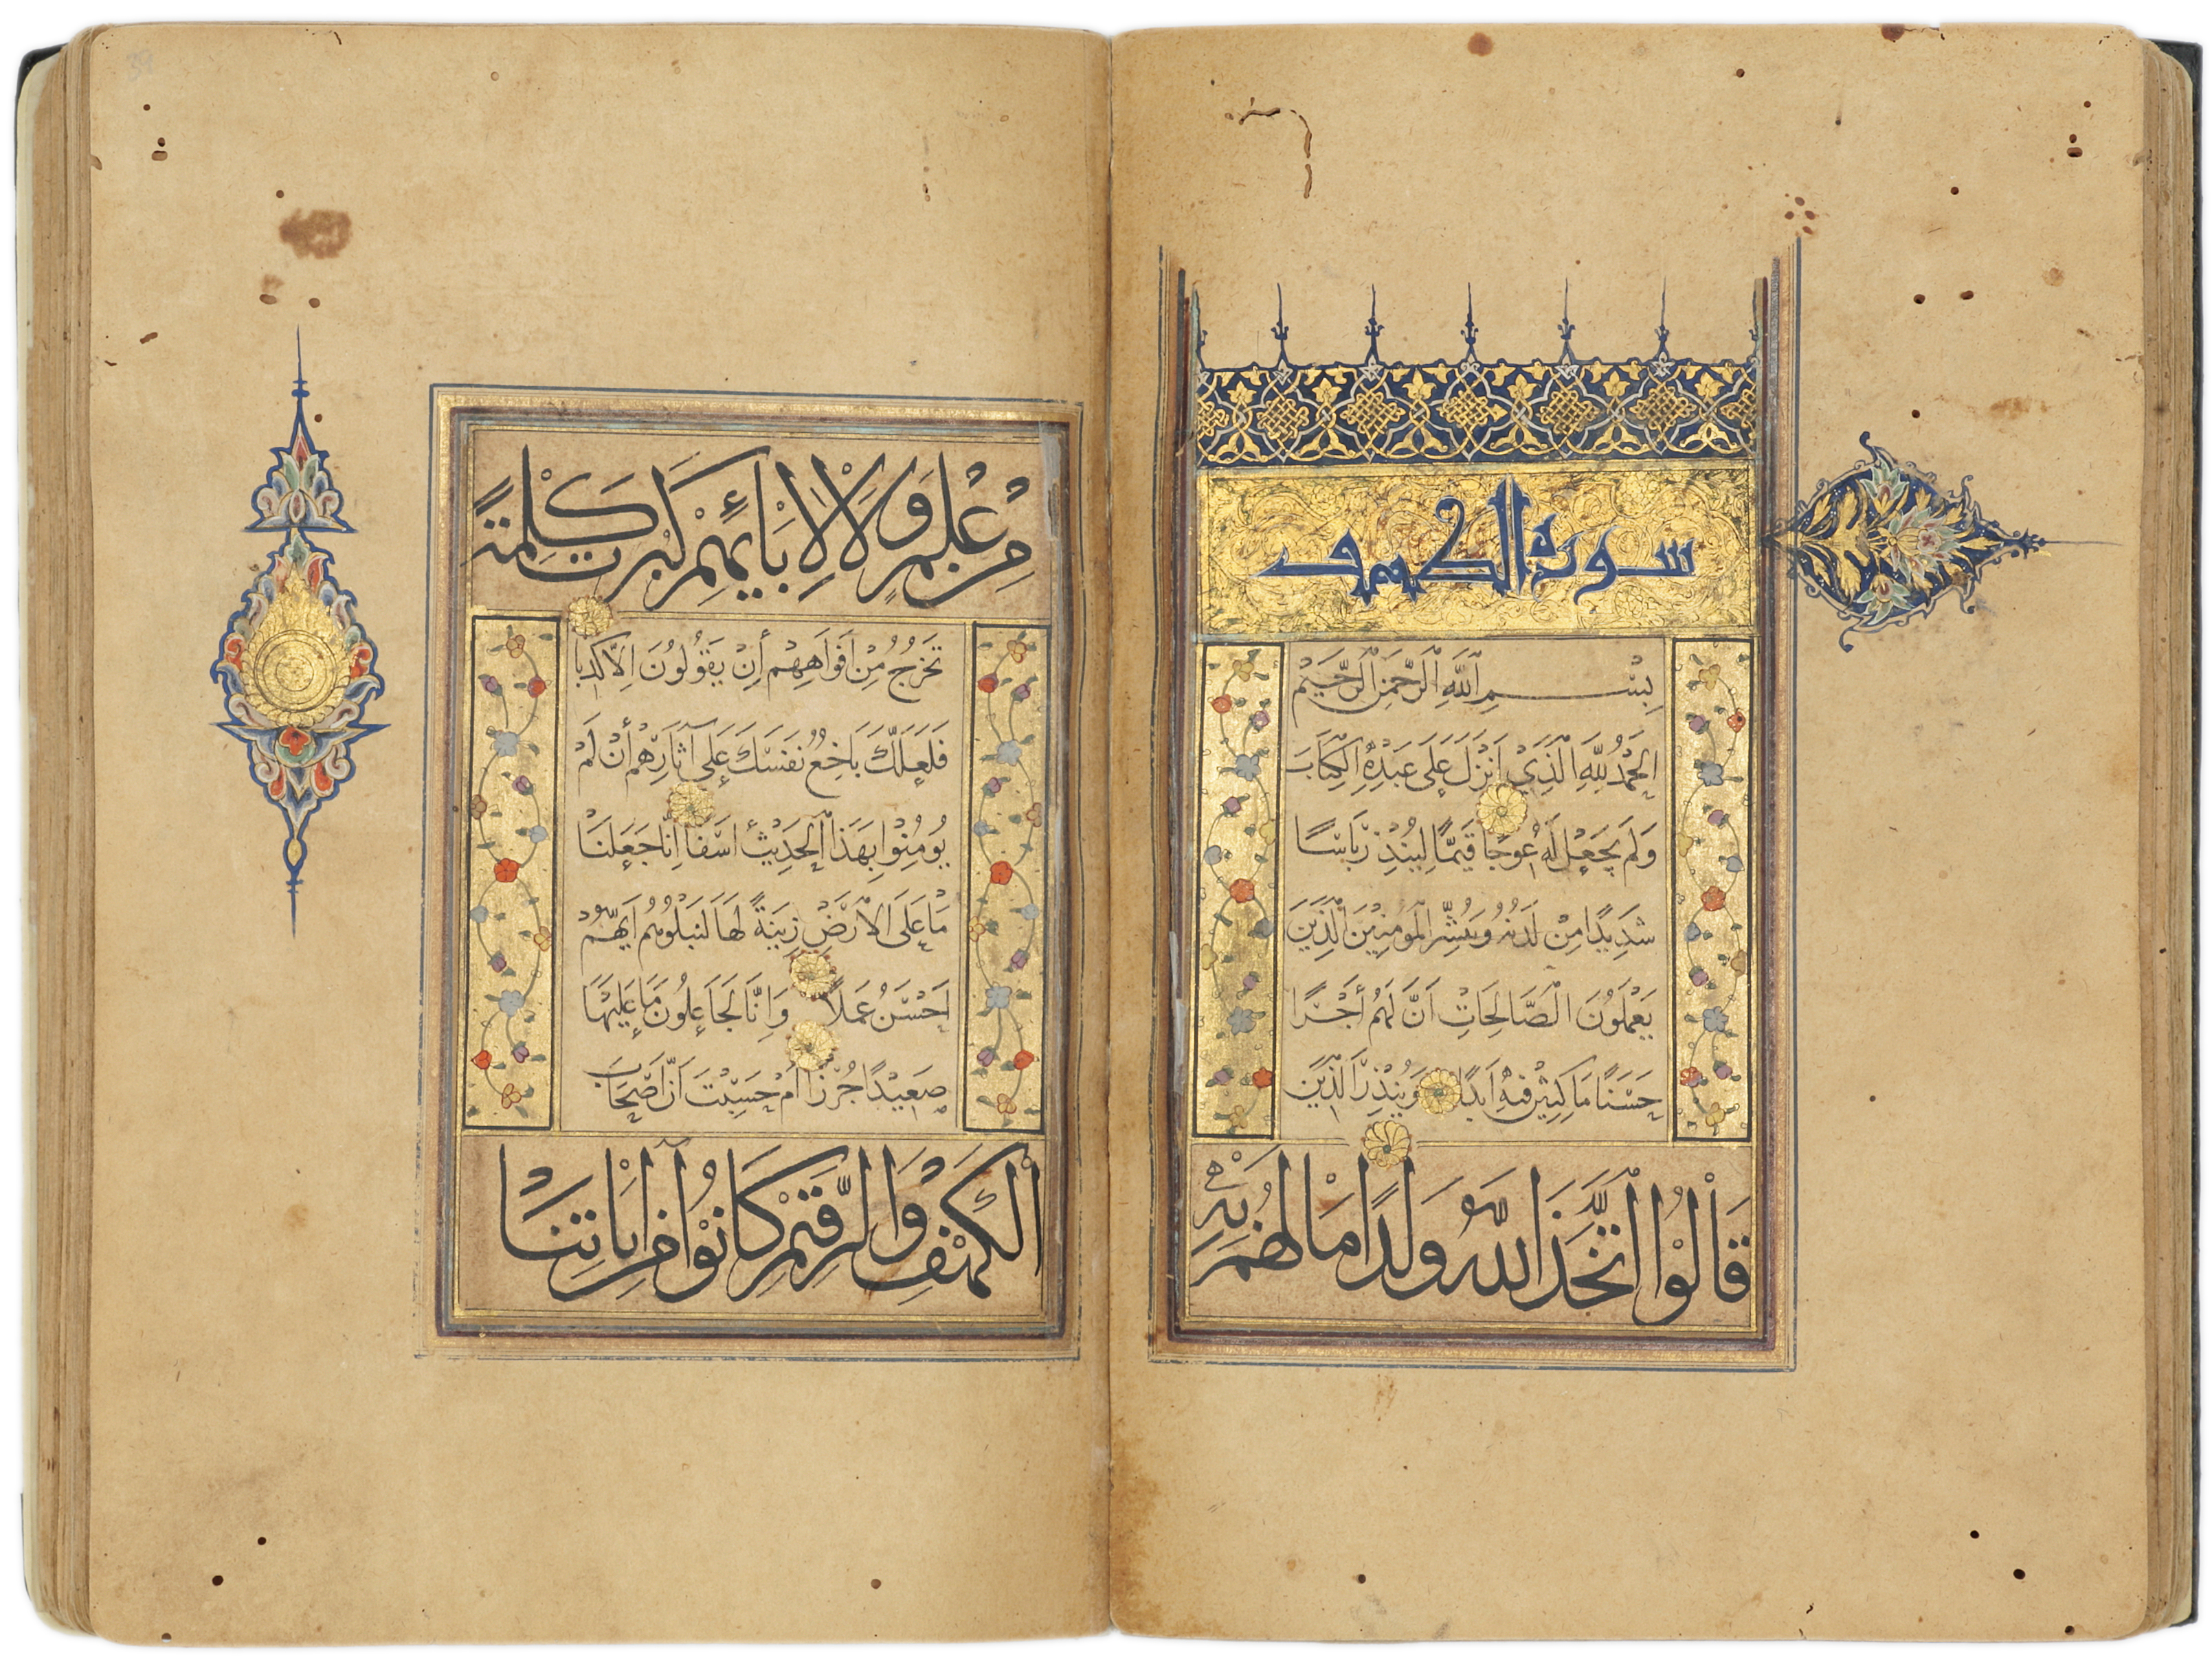 سورة الكهف
بِسْمِ اللَّهِ الرَّحْمَنِ الرَّحِيمِ
الْحَمْدُ لِلَّهِ الَّذِي أَنْزَلَ عَلَى عَبْدِهِ الْكِتَابَ
وَلَمْ يَجْعَلْ لَهُ عِوَجًا قَيِّمًا لِيُنْذِرَ بَاْسًا
شَدِيدًا مِنْ لَدُنْهُ وَيُبَشِّرَ الْمُؤْمِنِينَ الَّذِينَ
يَعْمَلُونَ الصَّالِحَاتِ اَنَّ لَهُمْ أَجْرًا
حَسَنًا مَاكِثِينَ فِيهِ اَبَدًا وَيُنْذِرَ الَّذِينَ
قَالُوا اتَّخَذَ اللَّهُ وَلَدًا مَا لَهُمْ بِهِ
مِنْ عِلْمٍ وَلَا لِاٰبَائِهِمْ كَبُرَتْ كَلِمَةً
تَخْرُجُ مِنْ اَفْوَاهِهِمْ أِنْ يَقُولُونَ اِلَّا كَذِبًا
فَلَعَلَّكَ بَاخِعٌ نَفْسَكَ عَلَى آثَارِهِمْ أِنْ لَمْ
يُومِنُوا بِهَذَا الْحَدِيثِ اَسَفًا اِنَّا جَعَلْنَا
مَا عَلَى الْاَرْضِ زِينَةً لَهَا لِنَبْلُوَهُمْ اَيُّهُمْ
اَحْسَنُ عَمَلًا وَاِنَّا لَجَاعِلُونَ مَا عَلَيْهَا
صَعِيدًا جُرُزًا اَمْ حَسِبْتَ اَنَّ اَصْحَابَ
الْكَهْفِ وَالرَّقِيمِ كَانُوا مِنْ اٰيَاتِنَا